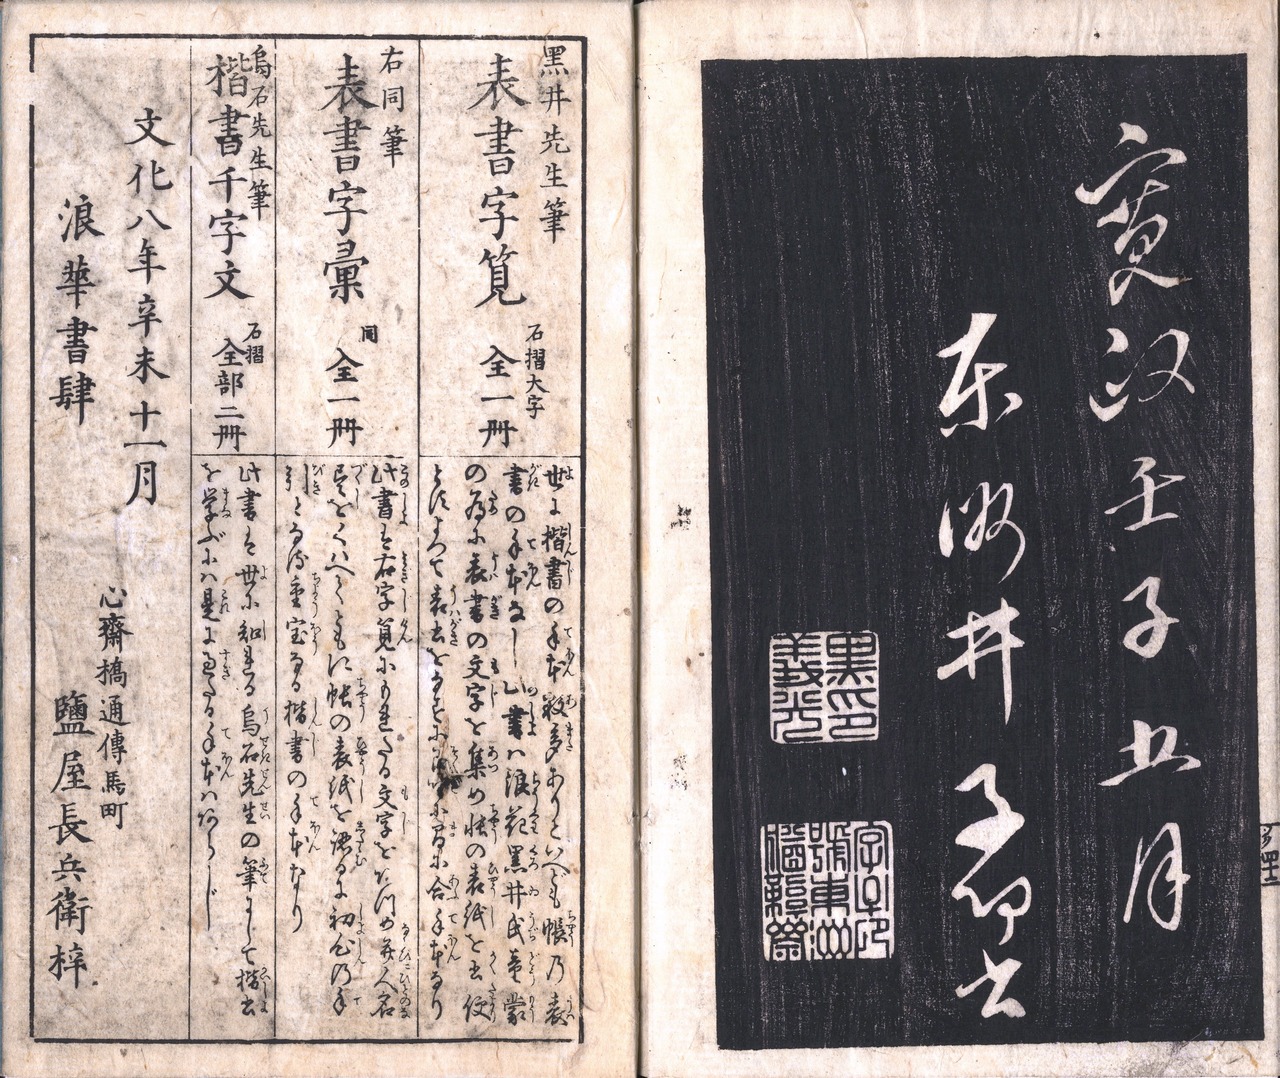 寛政壬子五月
東洲井子卯書
黒井先生筆
表書字覧
石摺大字
全一冊
世に楷書の手本数多ありといへども帳乃表
書の手本なし此書ハ浪花黒井氏童蒙
の為に表書の文字を集め帳の表紙を書便
右同筆
表書字彙
同
全一冊
此書は右字覧にもれたる文字をあつめ并人名
引となす重宝なる楷書の手本なり
烏石先生筆
楷書千字文
石摺
全部二冊
此書は世に知れる烏石先生の筆にして楷書
を学ぶには是に過たる手本ハあらじ
文化八年辛未十一月
浪華書肆
心齋橋通傳馬町
鹽屋長兵衛梓